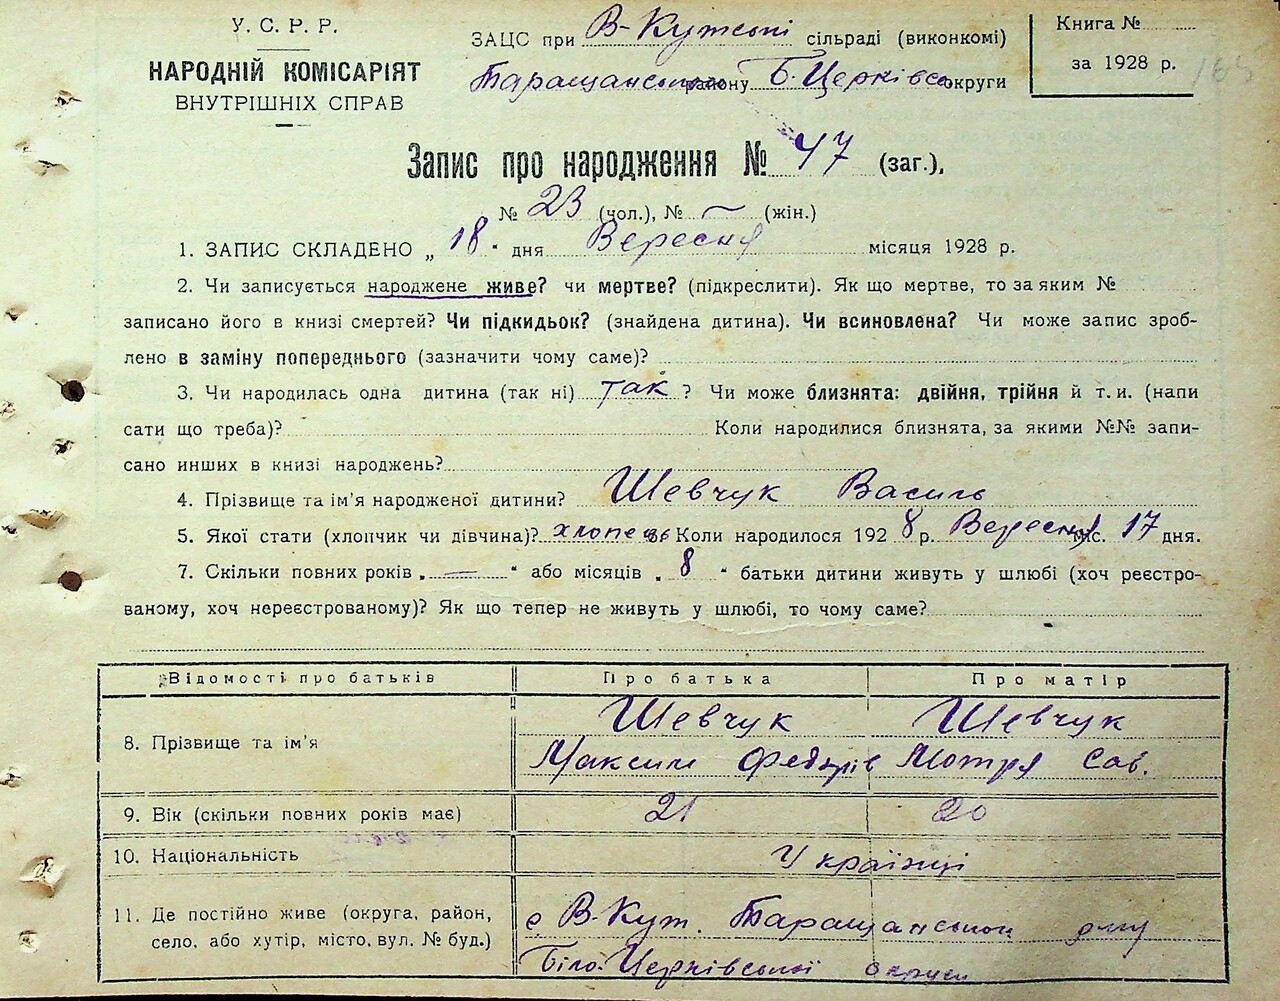 У. С. Р. Р.
НАРОДНІЙ КОМІСАРІЯТ
ВНУТРІШНІХ СПРАВ
ЗАЦС при В-Кутські сільраді (виконкомі)
Таращанського району Б. Церківсь округи
Книга №
за 1928 р. 163
Запис про народження № 47 (заг.),
№ 23 (чол.), № — (жін.)
1. ЗАПИС СКЛАДЕНО „ 18 " дня Вересня місяця 1928 р.
2. Чи записується народжене живе? чи мертве? (підкреслити). Як що мертве, то за яким №
записано його в книзі смертей? Чи підкидьок? (знайдена дитина). Чи всиновлена? Чи може запис зроб-
лено в заміну попереднього (зазначити чому саме)?
3. Чи народилась одна дитина (так ні) так ? Чи може близнята: двійня, трійня й т. и. (напи
сати що треба)? Коли народилися близнята, за якими №№ запи-
сано инших в книзі народжень?
4. Прізвище та ім'я народженої дитини? Шевчук Василь
5. Якої стати (хлопчик чи дівчина)? хлопець Коли народилося 192 8 р. Вересня міс. 17 дня.
7. Скільки повних років „ — " або місяців „ 8 " батьки дитини живуть у шлюбі (хоч реєстро-
ваному, хоч нереєстрованому)? Як що тепер не живуть у шлюбі, то чому саме?
Відомості про батьків Про батька Про матір
8. Прізвище та ім'я Шевчук Шевчук
Максим Федорів Мотря Сав.
9. Вік (скільки повних років має) 21 20
10. Національність Українці
11. Де постійно живе (округа, район, с В-Кут. Таращанського
село, або хутір, місто, вул. № буд.) Біло-Церківської округи